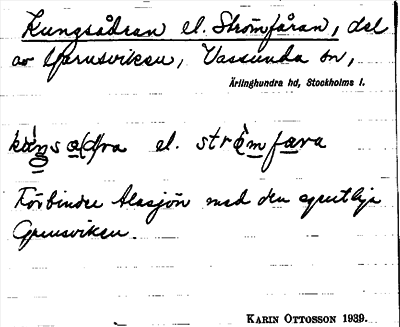 Kungsådran el. Strömfåran, del
av Garnsviken, Vassunda sn,
Ärlinghundra hd, Stockholms l.
kùŋs a(d)ra el. strö̀m færa
Förbinder Alasjön med den egentliga
Garnsviken.
KARIN OTTOSSON 1939.